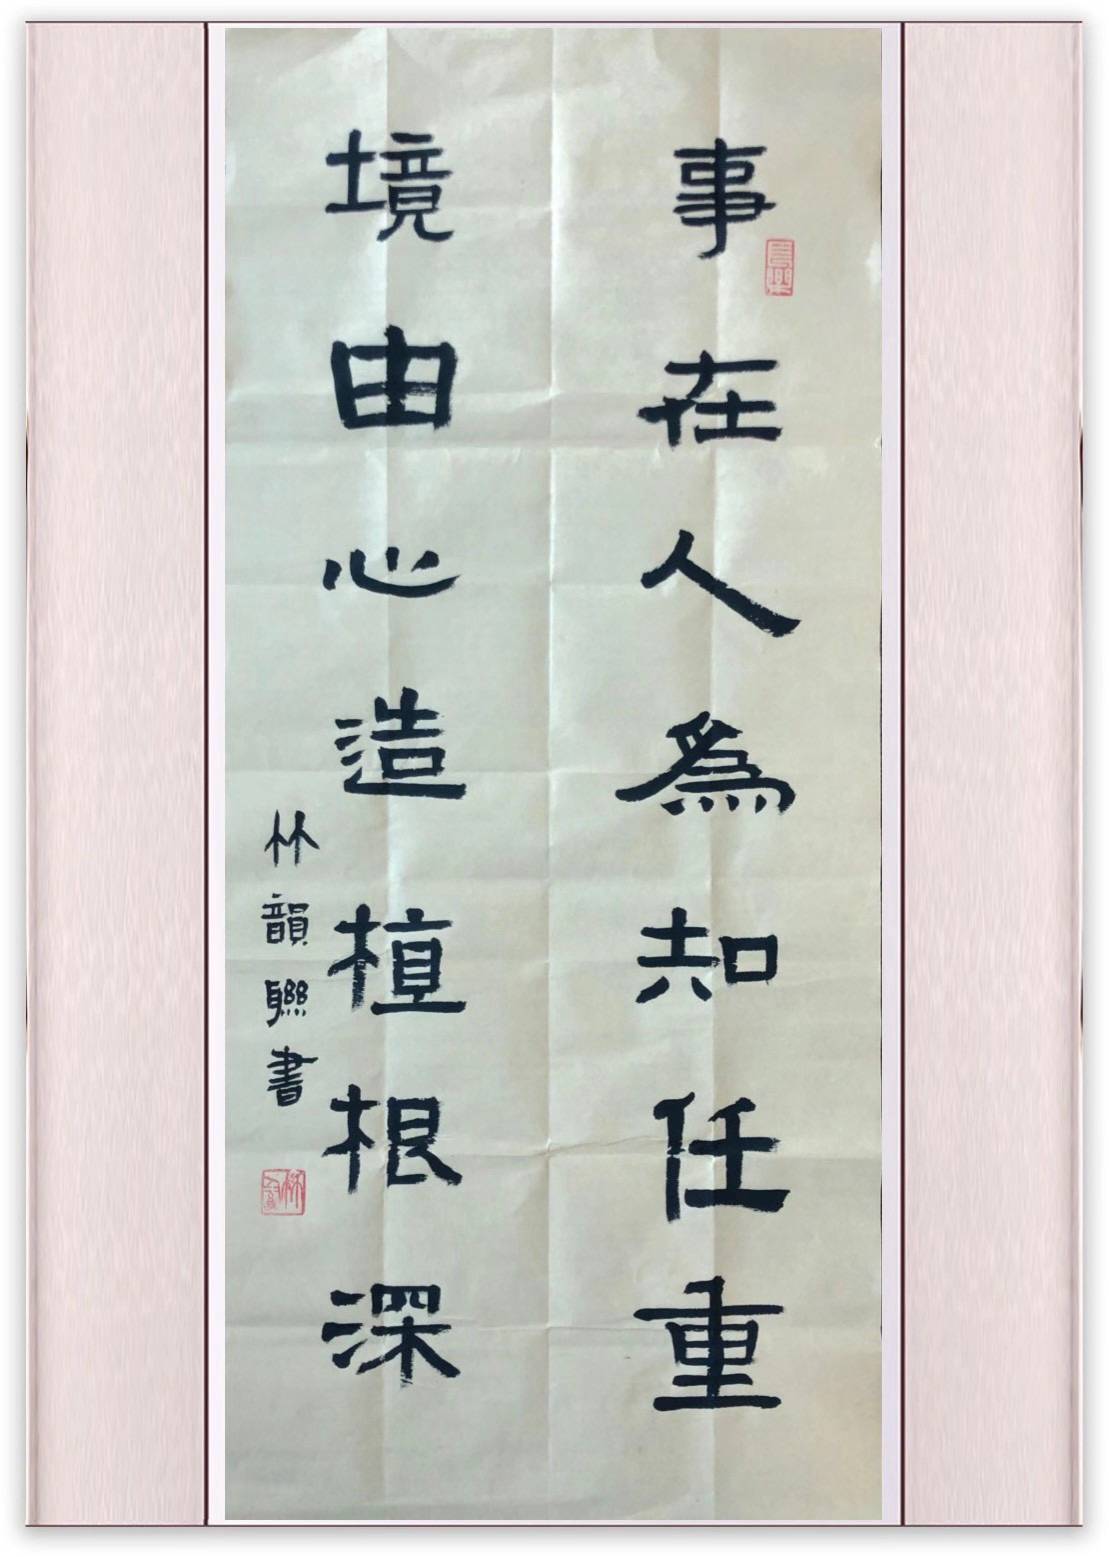 事在人為知任重
境由心造植根深
林韻聯書